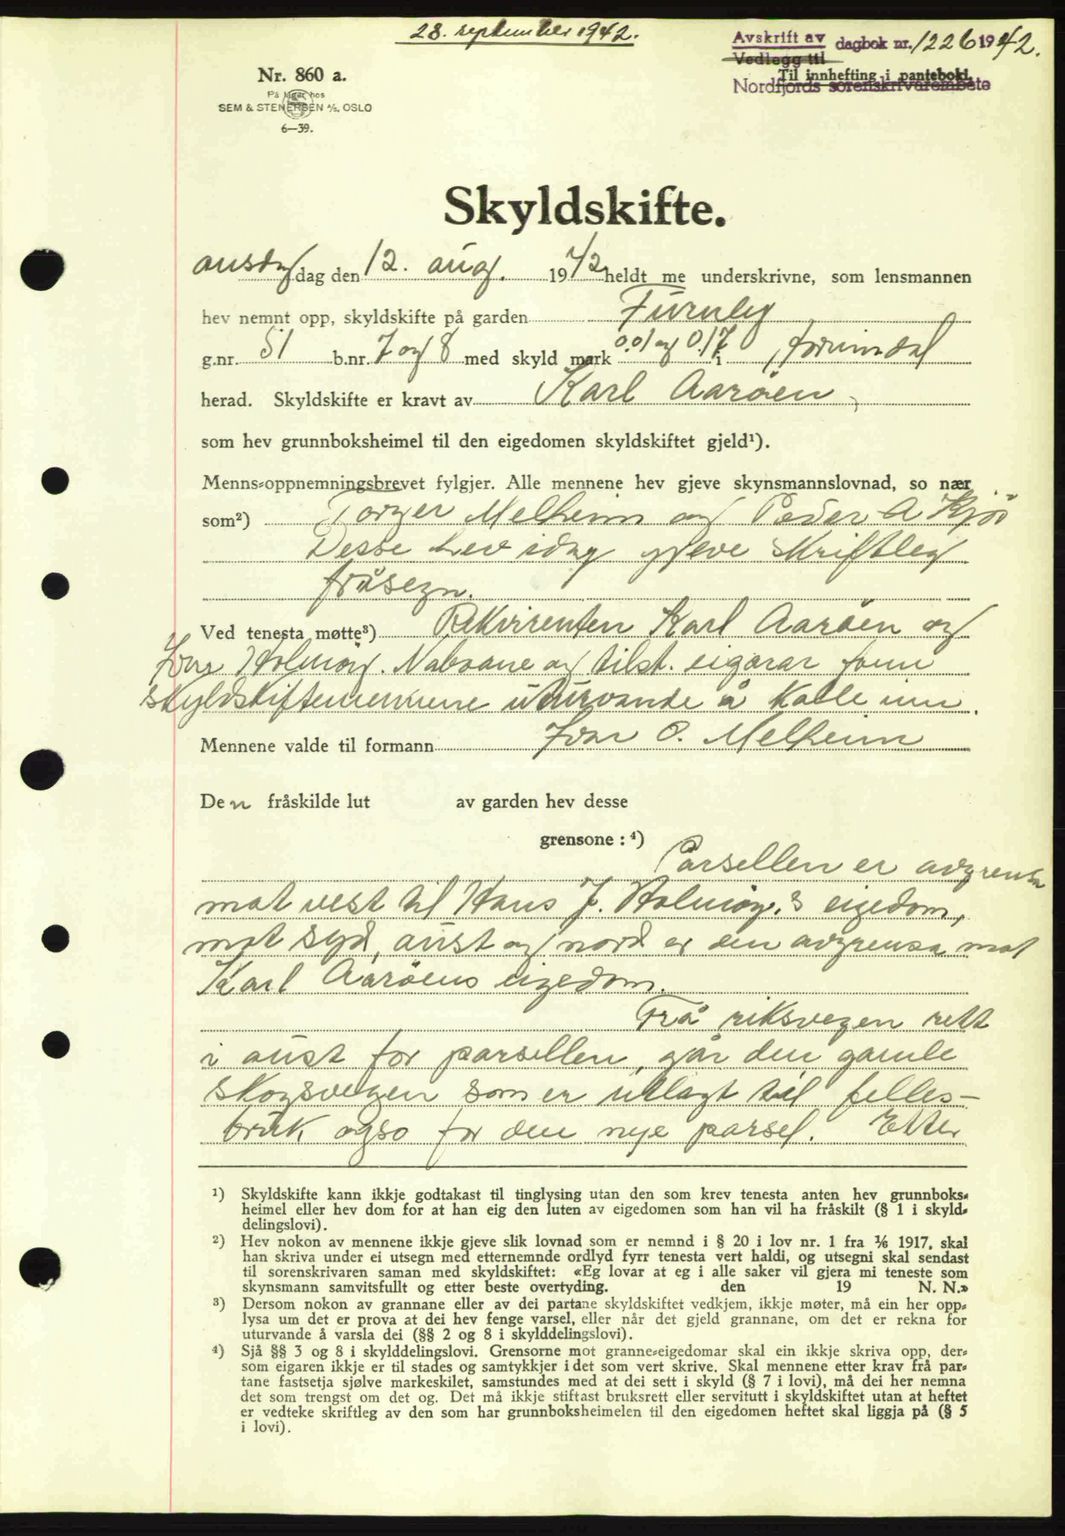 28. september 1942.
Avskrift av dagbok nr. 1226 1942.
Vedlegg til
Til innhefting i pantebok.
Nordfjords sorenskrivarembete
Nr. 860 a.
På lager hos
SEM & STENERSEN A/S, OSLO
6—39.
Skyldskifte.
onsdag dag den 12. aug. 1942 heldt me underskrivne, som lensmannen
hev nemnt opp, skyldskifte på garden Furuly
g.nr. 51 b.nr. 7 og 8 med skyld mark 0.01 og 0.17 i
herad. Skyldskifte er kravt av Karl Aarøen,
som hev grunnboksheimel til den eigedomen skyldskiftet gjeld¹).
Menns-oppnemningsbrevet fylgjer. Alle mennene hev gjeve skynsmannslovnad, so nær
som²) Torger Melheim og Peder A Kjøs
Desse hev idag gjeve skriftleg
fråsegn.
Ved tenesta møtte³) Rekvirenten Karl Aarøen og
Holmøy. Naboane og tilst. eigarar fann
skyldskiftemennene uturvande å kalle inn.
Mennene valde til formann Ivar O. Melheim
Den fråskilde lut av garden hev desse
grensone : ⁴)
Parsellen er avgrensa
mot vest til Hans J. Holmøy's eigedom,
mot syd, aust og nord er den avgrensa mot
Karl Aarøens eigedom.
Frå riksvegen rett
i aust for parsellen, går den gamle
skogsvegen som er utlagt til felles-
bruk også for den nye parsel. Etter
¹) Skyldskifte kann ikkje godtakast til tinglysing utan den som krev tenesta anten hev grunnboks-
heimel eller hev dom for at han eig den luten av eigedomen som han vil ha fråskilt (§ 1 i skyld-
delingslovi).
²) Hev nokon av mennene ikkje gjeve slik lovnad som er nemnd i § 20 i lov nr. 1 fra 1/6 1917, skal
han skriva under ei utsegn med etternemnde ordlyd fyrr tenesta vert haldi, og utsegni skal sendast
til sorenskrivaren saman med skyldskiftet: «Eg lovar at eg i alle saker vil gjera mi teneste som
skynsmann samvitsfullt og etter beste overtyding. den 19 N. N.»
³) Dersom nokon av grannane eller av dei partane skyldskiftet vedkjem, ikkje møter, må ein her opp-
lysa um det er prova at dei hev fenge varsel, eller når det gjeld grannane, om det er rekna for
uturvande å varsla dei (§§ 2 og 8 i skylddelingslovi).
⁴) Sjå §§ 3 og 8 i skylddelingslovi. Grensorne mot granne-eigedomar skal ein ikkje skriva opp, der-
som eigaren ikkje er til stades og samtykkjer i det som vert skrive. Skal mennene etter krav frå par-
tane fastsetja sjølve markeskilet, samstundes med at dei sett i skyld (§ 7 i lovi), må dei her nemna
det som trengst om det og. Det må ikkje stiftast bruksrett eller servitutt i skyldskiftet utan at heftet
er vedteke skriftleg av den som har grunnboksheimelen til den eigedomen heftet skal liggja på (§ 5
i lovi).